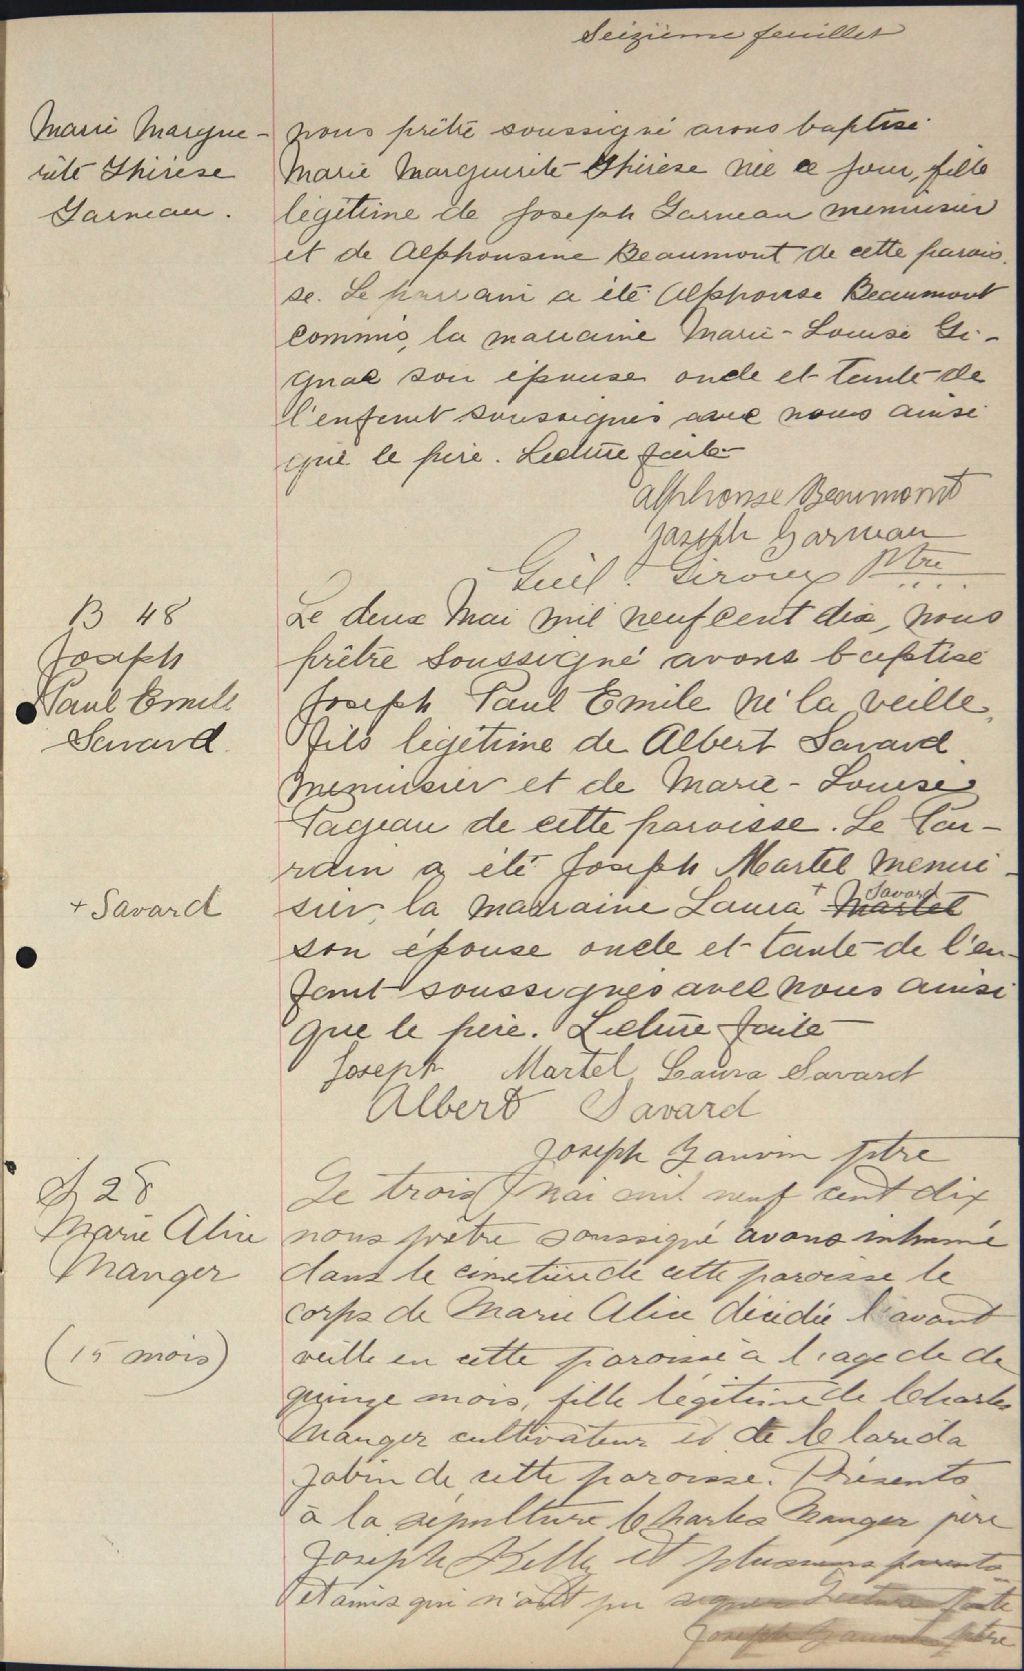 Seizième feuillet
Marie Margue-
rite Thérèse
Garneau.
nous prêtre soussigné avons baptisé
Marie Marguerite Thérèse née ce jour, fille
légitime de Joseph Garneau menuisier
et de Alphonsine Beaumont de cette parois
se. Le parrain a été Alphonse Beaumont
commis, la marraine Marie-Louise Gi-
gnac son épouse oncle et tante de
l'enfant soussignés avec nous ainsi
que le père. Lecture faite
Alphonse Beaumont
Joseph Garneau
Guil. Giroux Ptre
B 48
Joseph
Paul Emile
Savard
Le deux Mai mil neuf cent dix, nous
prêtre soussigné avons baptisé
Joseph Paul Emile né la veille,
fils légitime de Albert Savard
menuisier et de Marie-Louise
Pageau de cette paroisse. Le Par-
rain a été Joseph Martel menui-
sier, la marraine Laura + Martel Savard
+ Savard
son épouse oncle et tante de l'en-
fant soussignés avec nous ainsi
que le père. Lecture faite
Joseph Martel Laura Savard
Albert Savard
Joseph Gauvin ptre
S 28
Marie Alice
Manger
(15 mois)
Le trois Mai mil neuf cent dix
nous prêtre soussigné avons inhumé
dans le cimetière de cette paroisse le
corps de Marie Alice décédée l'avant
veille en cette paroisse à l'age de de
quinze mois, fille légitime de Charles
Manger cultivateur et de Clarida
Jobin de cette paroisse. Présents
à la sépulture Charles Manger père
Joseph Kelly et plusieurs parents
et amis qui n'ont pu signer Lecture faite
Joseph Gauvin ptre